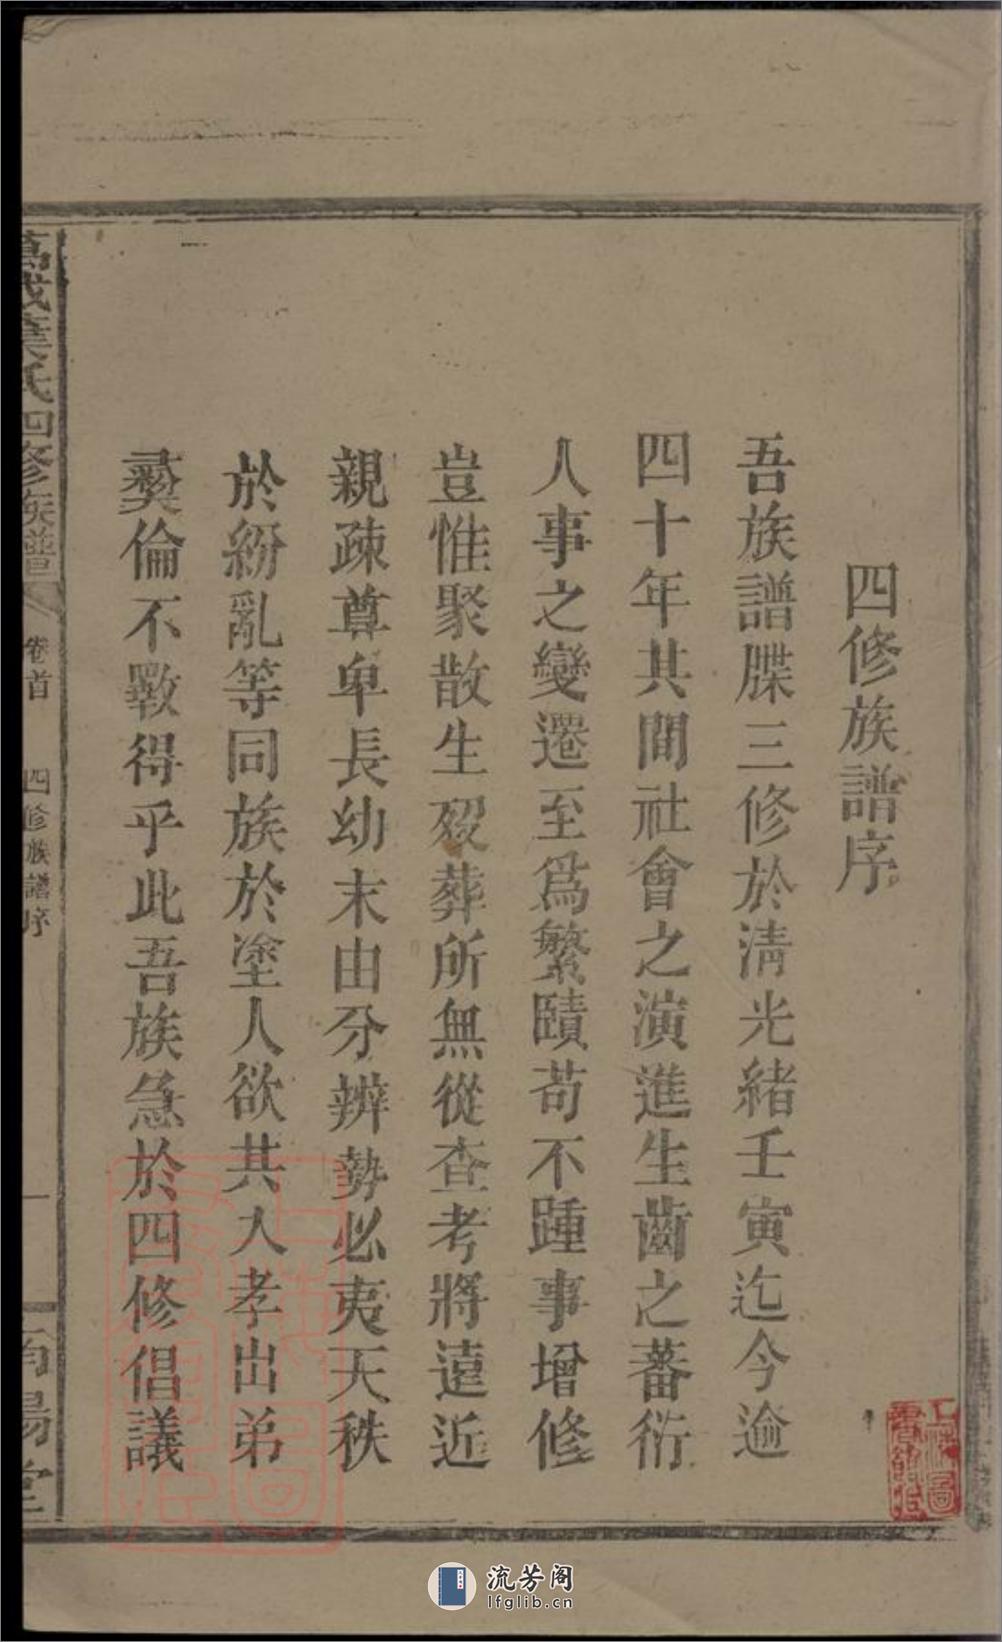 四修族譜序
吾族譜牒三修於淸光緒壬寅迄今逾
四十年其間社會之演進生齒之蕃衍
人事之變遷至爲繁賾苟不踵事增修
豈惟聚散生歿葬所無從查考將遠近
親疎尊卑長幼末由分辨勢必夷天秩
於紛亂等同族於塗人欲其入孝出弟
彝倫不斁得乎此吾族急於四修倡議
萬載葉氏四修族譜
卷首
四修族譜序
一
南陽堂
上海圖書館藏
流芳阁
lfglib.cn